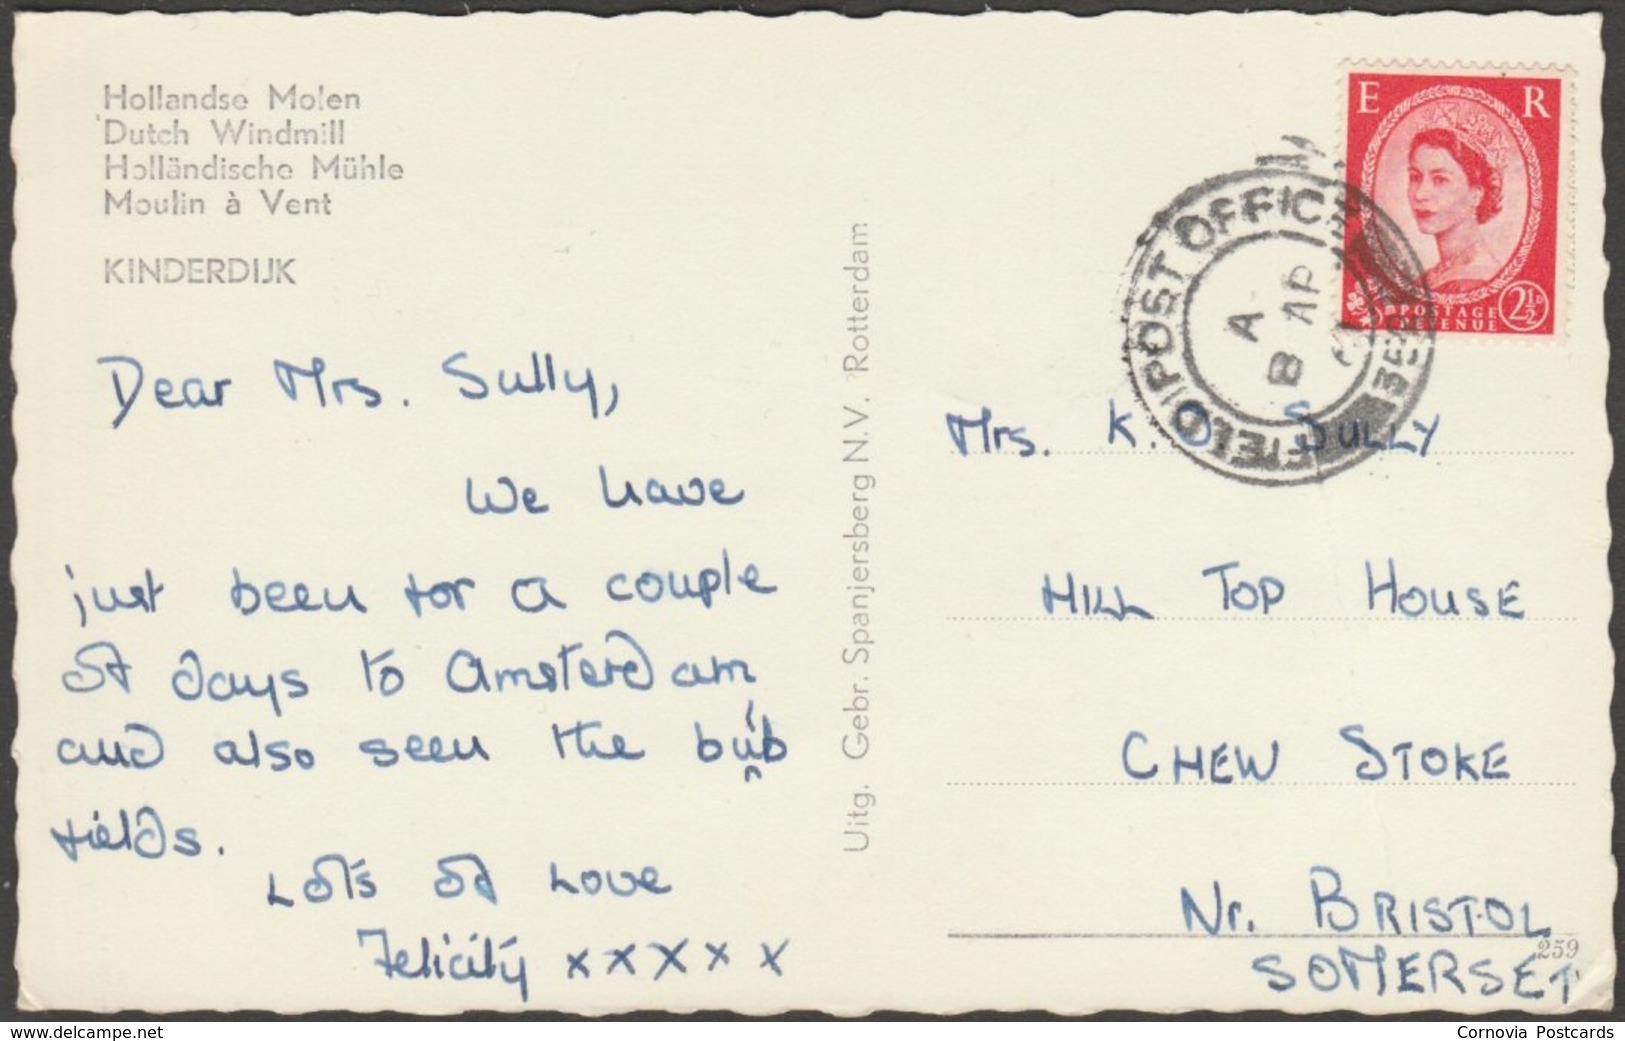 Hollandse Molen
Dutch Windmill
Holländische Mühle
Moulin à Vent
KINDERDIJK
Dear Mrs. Sully,
We have
just been for a couple
of days to Amsterdam
and also seen the bulb
fields.
Lots of Love
Felicity xxxxx
Uitg. Gebr. Spanjersberg N.V. Rotterdam
E R
POSTAGE
REVENUE
2½D
POST OFFICE
FIELD
A
8 AP
Mrs. K. Sully
HILL TOP HOUSE
CHEW STOKE
Nr. BRISTOL
SOMERSET
259
www.delcampe.net
Cornovia Postcards